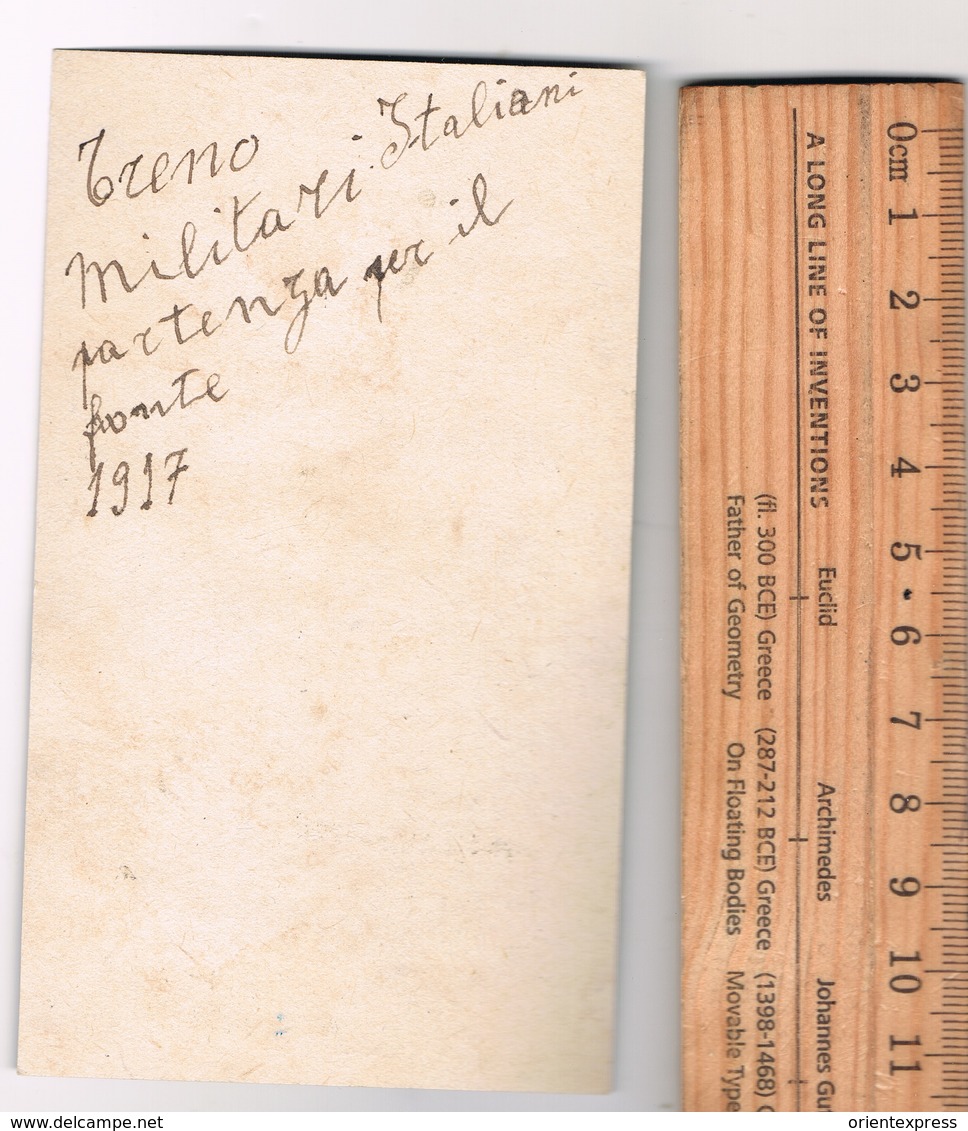 Treno
Militari Italiani
partenza per il
fronte
1917
0cm 1 2 3 4 5 6 7 8 9 10 11
A LONG LINE OF INVENTIONS
Euclid
(fl. 300 BCE) Greece
Father of Geometry
Archimedes
(287-212 BCE) Greece
On Floating Bodies
Johannes Gut
(1398-1468) G
Movable Type
delcampe.net
orientexpress